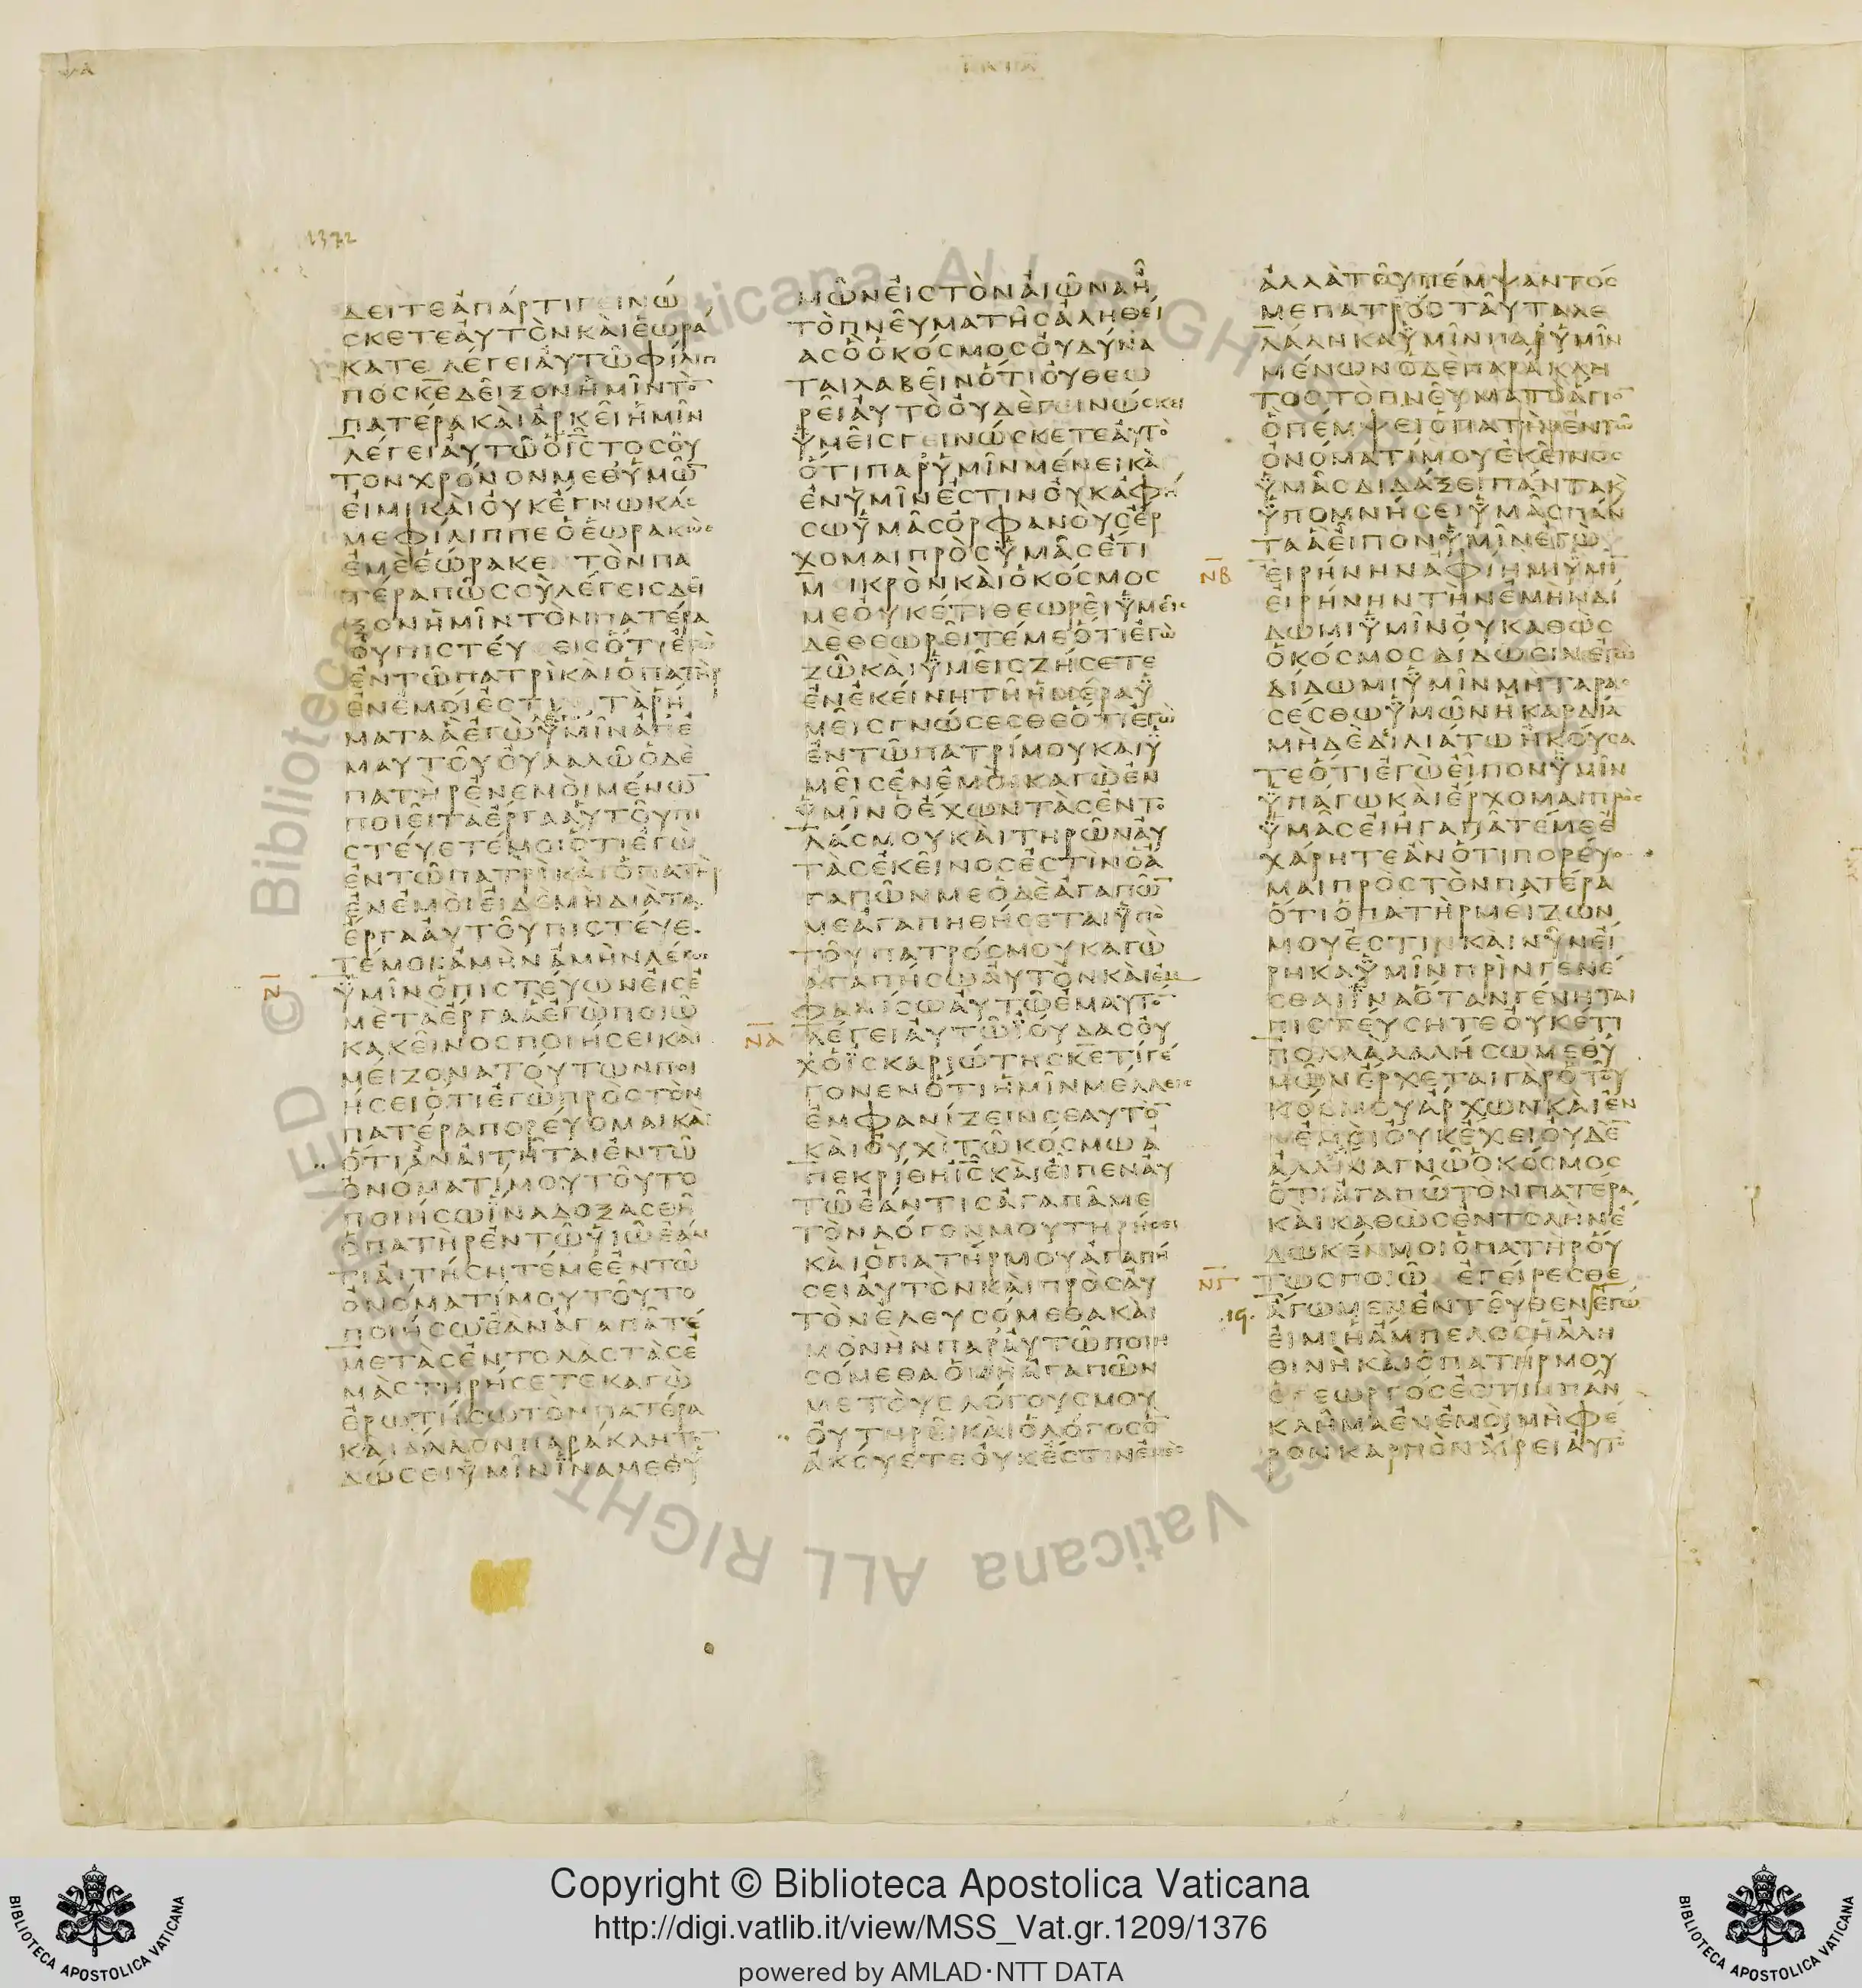 1372
ΔΕΙΤΕΑΠΑΡΤΙΓΕΙΝΩ
ΣΚΕΤΕΑΥΤΟΝΚΑΙΕΩΡΑ
ΚΑΤΕ ΛΕΓΕΙΑΥΤΩΦΙΛΙΠ
ΠΟΣΚΕΔΕΙΞΟΝΗΜΙΝΤΟ
ΠΑΤΕΡΑΚΑΙΑΡΚΕΙΗΜΙΝ
ΛΕΓΕΙΑΥΤΩΟΙΣΤΟΣΟΥ
ΤΟΝΧΡΟΝΟΝΜΕΘΥΜΩ
ΕΙΜΙΚΑΙΟΥΚΕΓΝΩΚΑΣ
ΜΕΦΙΛΙΠΠΕΟΕΩΡΑΚΩΣ
ΕΜΕΕΩΡΑΚΕ ΤΟΝΠΑ
ΤΕΡΑΠΩΣΣΥΛΕΓΕΙΣΔΕΙ
ΞΟΝΗΜΙΝΤΟΝΠΑΤΕΡΑ
ΟΥΠΙΣΤΕΥ ΕΙΣΟΤΙΕΓΩ
ΕΝΤΩΠΑΤΡΙΚΑΙΟΠΑΤΗΡ
ΕΝΕΜΟΙΕΣΤΙΝ ΤΑΡΗ
ΜΑΤΑΑΕΓΩΥΜΙΝΑΠΕ
ΜΑΥΤΟΥΟΥΛΑΛΩΟΔΕ
ΠΑΤΗΡΕΝΕΜΟΙΜΕΝΩ
ΠΟΙΕΙΤΑΕΡΓΑΑΥΤΟΥΠΙ
ΣΤΕΥΕΤΕΜΟΙΟΤΙΕΓΩ
ΕΝΤΩΠΑΤΡΙΚΑΙΟΠΑΤΗΡ
ΕΝΕΜΟΙΕΙΔΕΜΗΔΙΑΤΑ
ΕΡΓΑΑΥΤΟΥΠΙΣΤΕΥΕ
ΤΕΜΟΙΑΜΗΝΑΜΗΝΛΕΓΩ
ΥΜΙΝΟΠΙΣΤΕΥΩΝΕΙΣΕ
ΜΕΤΑΕΡΓΑΑΕΓΩΠΟΙΩ
ΚΑΚΕΙΝΟΣΠΟΙΗΣΕΙΚΑΙ
ΜΕΙΖΟΝΑΤΟΥΤΩΝΠΟΙ
ΗΣΕΙΟΤΙΕΓΩΠΡΟΣΤΟΝ
ΠΑΤΕΡΑΠΟΡΕΥΟΜΑΙΚΑΙ
ΟΤΙΑΝΑΙΤΗΤΑΙΕΝΤΩ
ΟΝΟΜΑΤΙΜΟΥΤΟΥΤΟ
ΠΟΙΗΣΩΙΝΑΔΟΞΑΣΘΗ
ΟΠΑΤΗΡΕΝΤΩΥΙΩΕΑΝ
ΤΙΑΙΤΗΣΗΤΕΜΕΕΝΤΩ
ΟΝΟΜΑΤΙΜΟΥΤΟΥΤΟ
ΠΟΙΗΣΩΕΑΝΑΓΑΠΑΤΕ
ΜΕΤΑΣΕΝΤΟΛΑΣΤΑΣΕ
ΜΑΣΤΗΡΗΣΕΤΕΚΑΓΩ
ΕΡΩΤΗΣΩΤΟΝΠΑΤΕΡΑ
ΚΑΙΑΛΛΟΝΠΑΡΑΚΛΗΤΟ
ΔΩΣΕΙΥΜΙΝΙΝΑΜΕΘΥ
ΜΩΝΕΙΣΤΟΝΑΙΩΝΑΗ
ΤΟΠΝΕΥΜΑΤΗΣΑΛΗΘΕΙ
ΑΣΟΟΚΟΣΜΟΣΟΥΔΥΝΑ
ΤΑΙΛΑΒΕΙΝΟΤΙΟΥΘΕΩ
ΡΕΙΑΥΤΟΟΥΔΕΓΕΙΝΩΣΚΕΙ
ΥΜΕΙΣΓΕΙΝΩΣΚΕΤΕΑΥΤΟ
ΟΤΙΠΑΡΥΜΙΝΜΕΝΕΙΚΑΙ
ΕΝΥΜΙΝΕΣΤΙΝΟΥΚΑΦΗ
ΣΩΥΜΑΣΟΡΦΑΝΟΥΣΕΡ
ΧΟΜΑΙΠΡΟΣΥΜΑΣΕΤΙ
ΜΙΚΡΟΝΚΑΙΟΚΟΣΜΟΣ
ΜΕΟΥΚΕΤΙΘΕΩΡΕΙΥΜΕΙΣ
ΔΕΘΕΩΡΕΙΤΕΜΕΟΤΙΕΓΩ
ΖΩΚΑΙΥΜΕΙΣΖΗΣΕΤΕ
ΕΝΕΚΕΙΝΗΤΗΗΜΕΡΑΥ
ΜΕΙΣΓΝΩΣΕΣΘΕΟΤΙΕΓΩ
ΕΝΤΩΠΑΤΡΙΜΟΥΚΑΙΥ
ΜΕΙΣΕΝΕΜΟΙΚΑΓΩΕΝ
ΥΜΙΝΟΕΧΩΝΤΑΣΕΝΤΟ
ΛΑΣΜΟΥΚΑΙΤΗΡΩΝΑΥ
ΤΑΣΕΚΕΙΝΟΣΕΣΤΙΝΟΑ
ΓΑΠΩΝΜΕΟΔΕΑΓΑΠΩ
ΜΕΑΓΑΠΗΘΗΣΕΤΑΙΥΠΟ
ΤΟΥΠΑΤΡΟΣΜΟΥΚΑΓΩ
ΑΓΑΠΗΣΩΑΥΤΟΝΚΑΙΕΜ
ΦΑΝΙΣΩΑΥΤΩΕΜΑΥΤΟ
ΝΑ ΛΕΓΕΙΑΥΤΩΙΟΥΔΑΣΟΥ
ΧΟΙΣΚΑΡΙΩΤΗΣΚΕΤΙΓΕ
ΓΟΝΕΝΟΤΙΗΜΙΝΜΕΛΛΕΙΣ
ΕΜΦΑΝΙΖΕΙΝΣΕΑΥΤΟ
ΚΑΙΟΥΧΙΤΩΚΟΣΜΩΑ
ΠΕΚΡΙΘΗΙΣΚΑΙΕΙΠΕΝΑΥ
ΤΩΕΑΝΤΙΣΑΓΑΠΑΜΕ
ΤΟΝΛΟΓΟΝΜΟΥΤΗΡΗΣΕΙ
ΚΑΙΟΠΑΤΗΡΜΟΥΑΓΑΠΗ
ΣΕΙΑΥΤΟΝΚΑΙΠΡΟΣΑΥ
ΤΟΝΕΛΕΥΣΟΜΕΘΑΚΑΙ
ΜΟΝΗΝΠΑΡΑΥΤΩΠΟΙΗ
ΣΟΜΕΘΑΟΜΗΑΓΑΠΩΝ
ΜΕΤΟΥΣΛΟΓΟΥΣΜΟΥ
ΟΥΤΗΡΕΙΚΑΙΟΛΟΓΟΣΟ
ΑΚΟΥΕΤΕΟΥΚΕΣΤΙΝΕΜΟΣ
ΑΛΛΑΤΟΥΠΕΜΨΑΝΤΟΣ
ΜΕΠΑΤΡΟΣΤΑΥΤΑΛΕ
ΛΑΛΗΚΑΥΜΙΝΠΑΡΥΜΙΝ
ΜΕΝΩΝΟΔΕΠΑΡΑΚΛΗ
ΤΟΣΤΟΠΝΕΥΜΑΤΟΑΓΙΟ
ΟΠΕΜΨΕΙΟΠΑΤΗΡΕΝΤΩ
ΟΝΟΜΑΤΙΜΟΥΕΚΕΙΝΟΣ
ΥΜΑΣΔΙΔΑΞΕΙΠΑΝΤΑΚ
ΥΠΟΜΝΗΣΕΙΥΜΑΣΠΑΝ
ΤΑΑΕΙΠΟΝΥΜΙΝΕΓΩ
ΝΒ ΕΙΡΗΝΗΝΑΦΙΗΜΙΥΜΙ
ΕΙΡΗΝΗΝΤΗΝΕΜΗΝΔΙ
ΔΩΜΙΥΜΙΝΟΥΚΑΘΩΣ
ΟΚΟΣΜΟΣΔΙΔΩΣΙΝΕΓΩ
ΔΙΔΩΜΙΥΜΙΝΜΗΤΑΡΑΣ
ΣΕΣΘΩΥΜΩΝΗΚΑΡΔΙΑ
ΜΗΔΕΔΙΛΙΑΤΩΗΚΟΥΣΑ
ΤΕΟΤΙΕΓΩΕΙΠΟΝΥΜΙΝ
ΥΠΑΓΩΚΑΙΕΡΧΟΜΑΙΠΡΟΣ
ΥΜΑΣΕΙΗΓΑΠΑΤΕΜΕΕ
ΧΑΡΗΤΕΑΝΟΤΙΠΟΡΕΥΟ
ΜΑΙΠΡΟΣΤΟΝΠΑΤΕΡΑ
ΟΤΙΟΠΑΤΗΡΜΕΙΖΩΝ
ΜΟΥΕΣΤΙΝΚΑΙΝΥΝΕΙ
ΡΗΚΑΥΜΙΝΠΡΙΝΓΕΝΕ
ΣΘΑΙΙΝΑΟΤΑΝΓΕΝΗΤΑΙ
ΠΙΣΤΕΥΣΗΤΕΟΥΚΕΤΙ
ΠΟΛΛΑΛΑΛΗΣΩΜΕΘΥ
ΜΩΝΕΡΧΕΤΑΙΓΑΡΟΤΟΥ
ΚΟΣΜΟΥΑΡΧΩΝΚΑΙΕΝ
ΕΜΟΙΟΥΚΕΧΕΙΟΥΔΕ
ΑΛΛΙΝΑΓΝΩΟΚΟΣΜΟΣ
ΟΤΙΑΓΑΠΩΤΟΝΠΑΤΕΡΑ
ΚΑΙΚΑΘΩΣΕΝΤΟΛΗΝΕ
ΔΩΚΕΝΜΟΙΟΠΑΤΗΡΟΥ
ΝΓ ΤΩΣΠΟΙΩ ΕΓΕΙΡΕΣΘΕ
ΑΓΩΜΕΝΕΝΤΕΥΘΕΝΕΓΩ
ΕΙΜΙΗΑΜΠΕΛΟΣΗΑΛΗ
ΘΙΝΗΚΑΙΟΠΑΤΗΡΜΟΥ
ΟΓΕΩΡΓΟΣΕΣΤΙΝΠΑΝ
ΚΛΗΜΑΕΝΕΜΟΙΜΗΦΕ
ΡΟΝΚΑΡΠΟΝΑΙΡΕΙΑΥΤΟ
Copyright © Biblioteca Apostolica Vaticana
http://digi.vatlib.it/view/MSS_Vat.gr.1209/1376
powered by AMLAD·NTT DATA
BIBLIOTECA APOSTOLICA VATICANA
BIBLIOTECA APOSTOLICA VATICANA